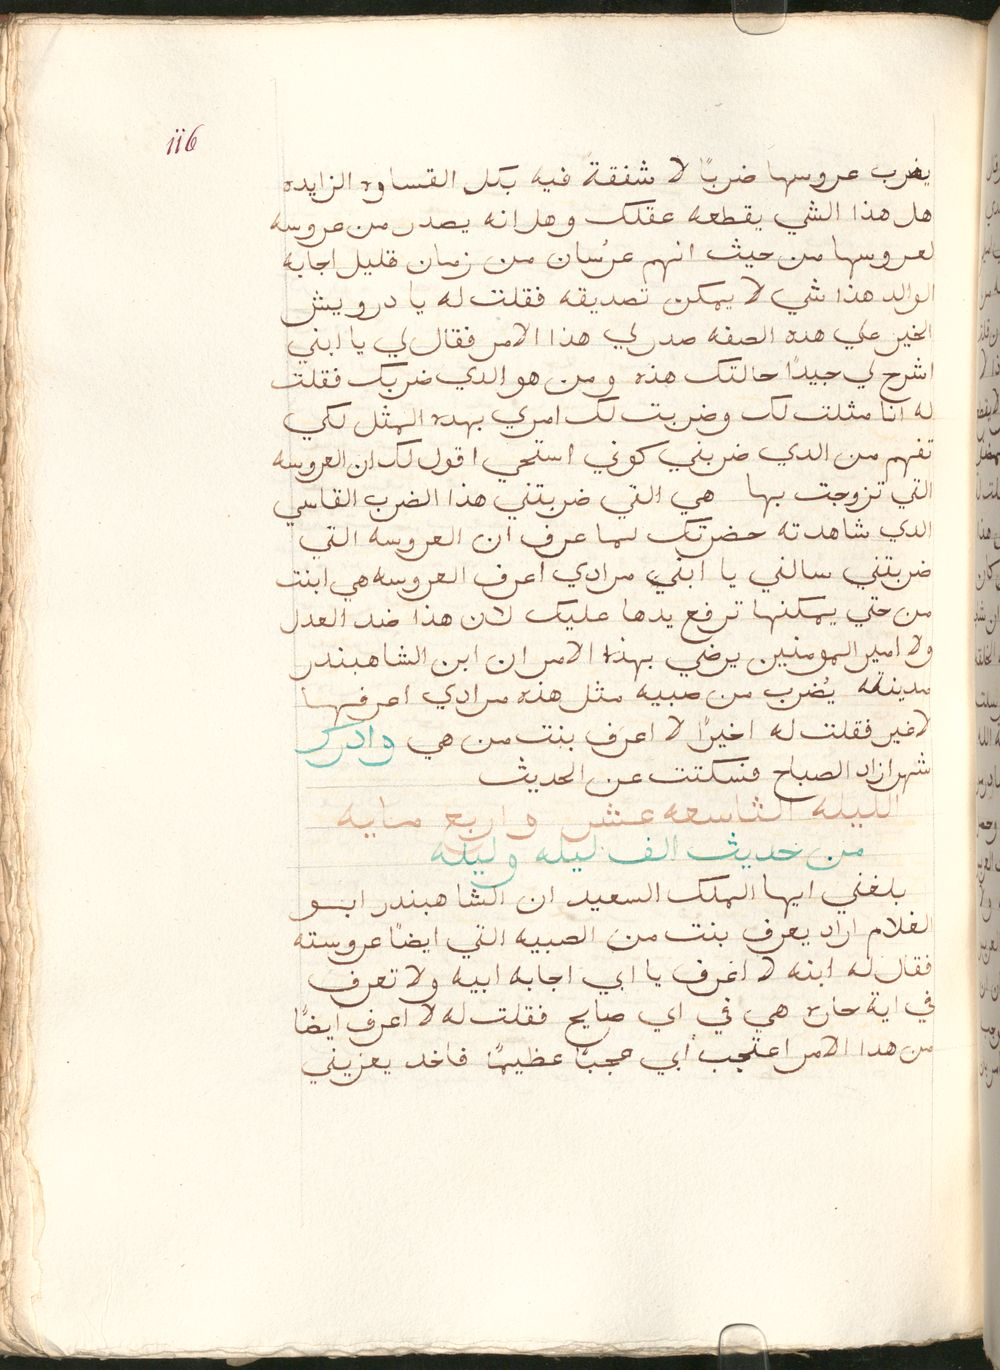 116
يضرب عروسها ضربًا لا شفقة فيه بكل القساوه الزايده
هل هذا الشي يقطعه عقلك وهل انه يصدر من عروسه
لعروسها من حيث انهم عرسان من زمان قليل اجابه
الوالد هذا شي لا يمكن تصديقه فقلت له يا درويش
الخير علي هده الصفه صدر لي هذا الامر فقال لي يا ابني
اشرح لي جيدًا حالتك هذه ومن هو الدي ضربك فقلت
له انا مثلت لك وضربت لك امري بهده المثل لكي
تفهم من الدي ضربني كوني استحي اقول لك ان العروسه
التي تزوجت بها هي التي ضربتني هذا الضرب القاسي
الدي شاهدته حضرتك لما عرف ان العروسه التي
ضربتني سالني يا ابني مرادي اعرف العروسه هي ابنت
من حتي يمكنها ترفع يدها عليك لان هذا ضد العدل
ولا امير المومنين يرضي بهذا الامر ان ابن الشاهبندر
مدينته يُضرب من صبيه مثل هذه مرادي اعرفها
لاغير فقلت له اخيرًا لا اعرف بنت من هي وادرك
شهرازاد الصباح فسكتت عن الحديث
الليله التاسعه عشر واربع مايه
من حديث الف ليله وليله
بلغني ايها الملك السعيد ان الشاهبندر ابو
الغلام اراد يعرف بنت من الصبيه التي ايضًا عروسته
فقال له ابنه لا اعرف يا ابي اجابه ابيه ولا تعرف
في اية حاره هي في اي صايح فقلت له لا اعرف ايضًا
من هدا الامر اعتجب أبي عجبًا عظيمًا فاخد يعزيني